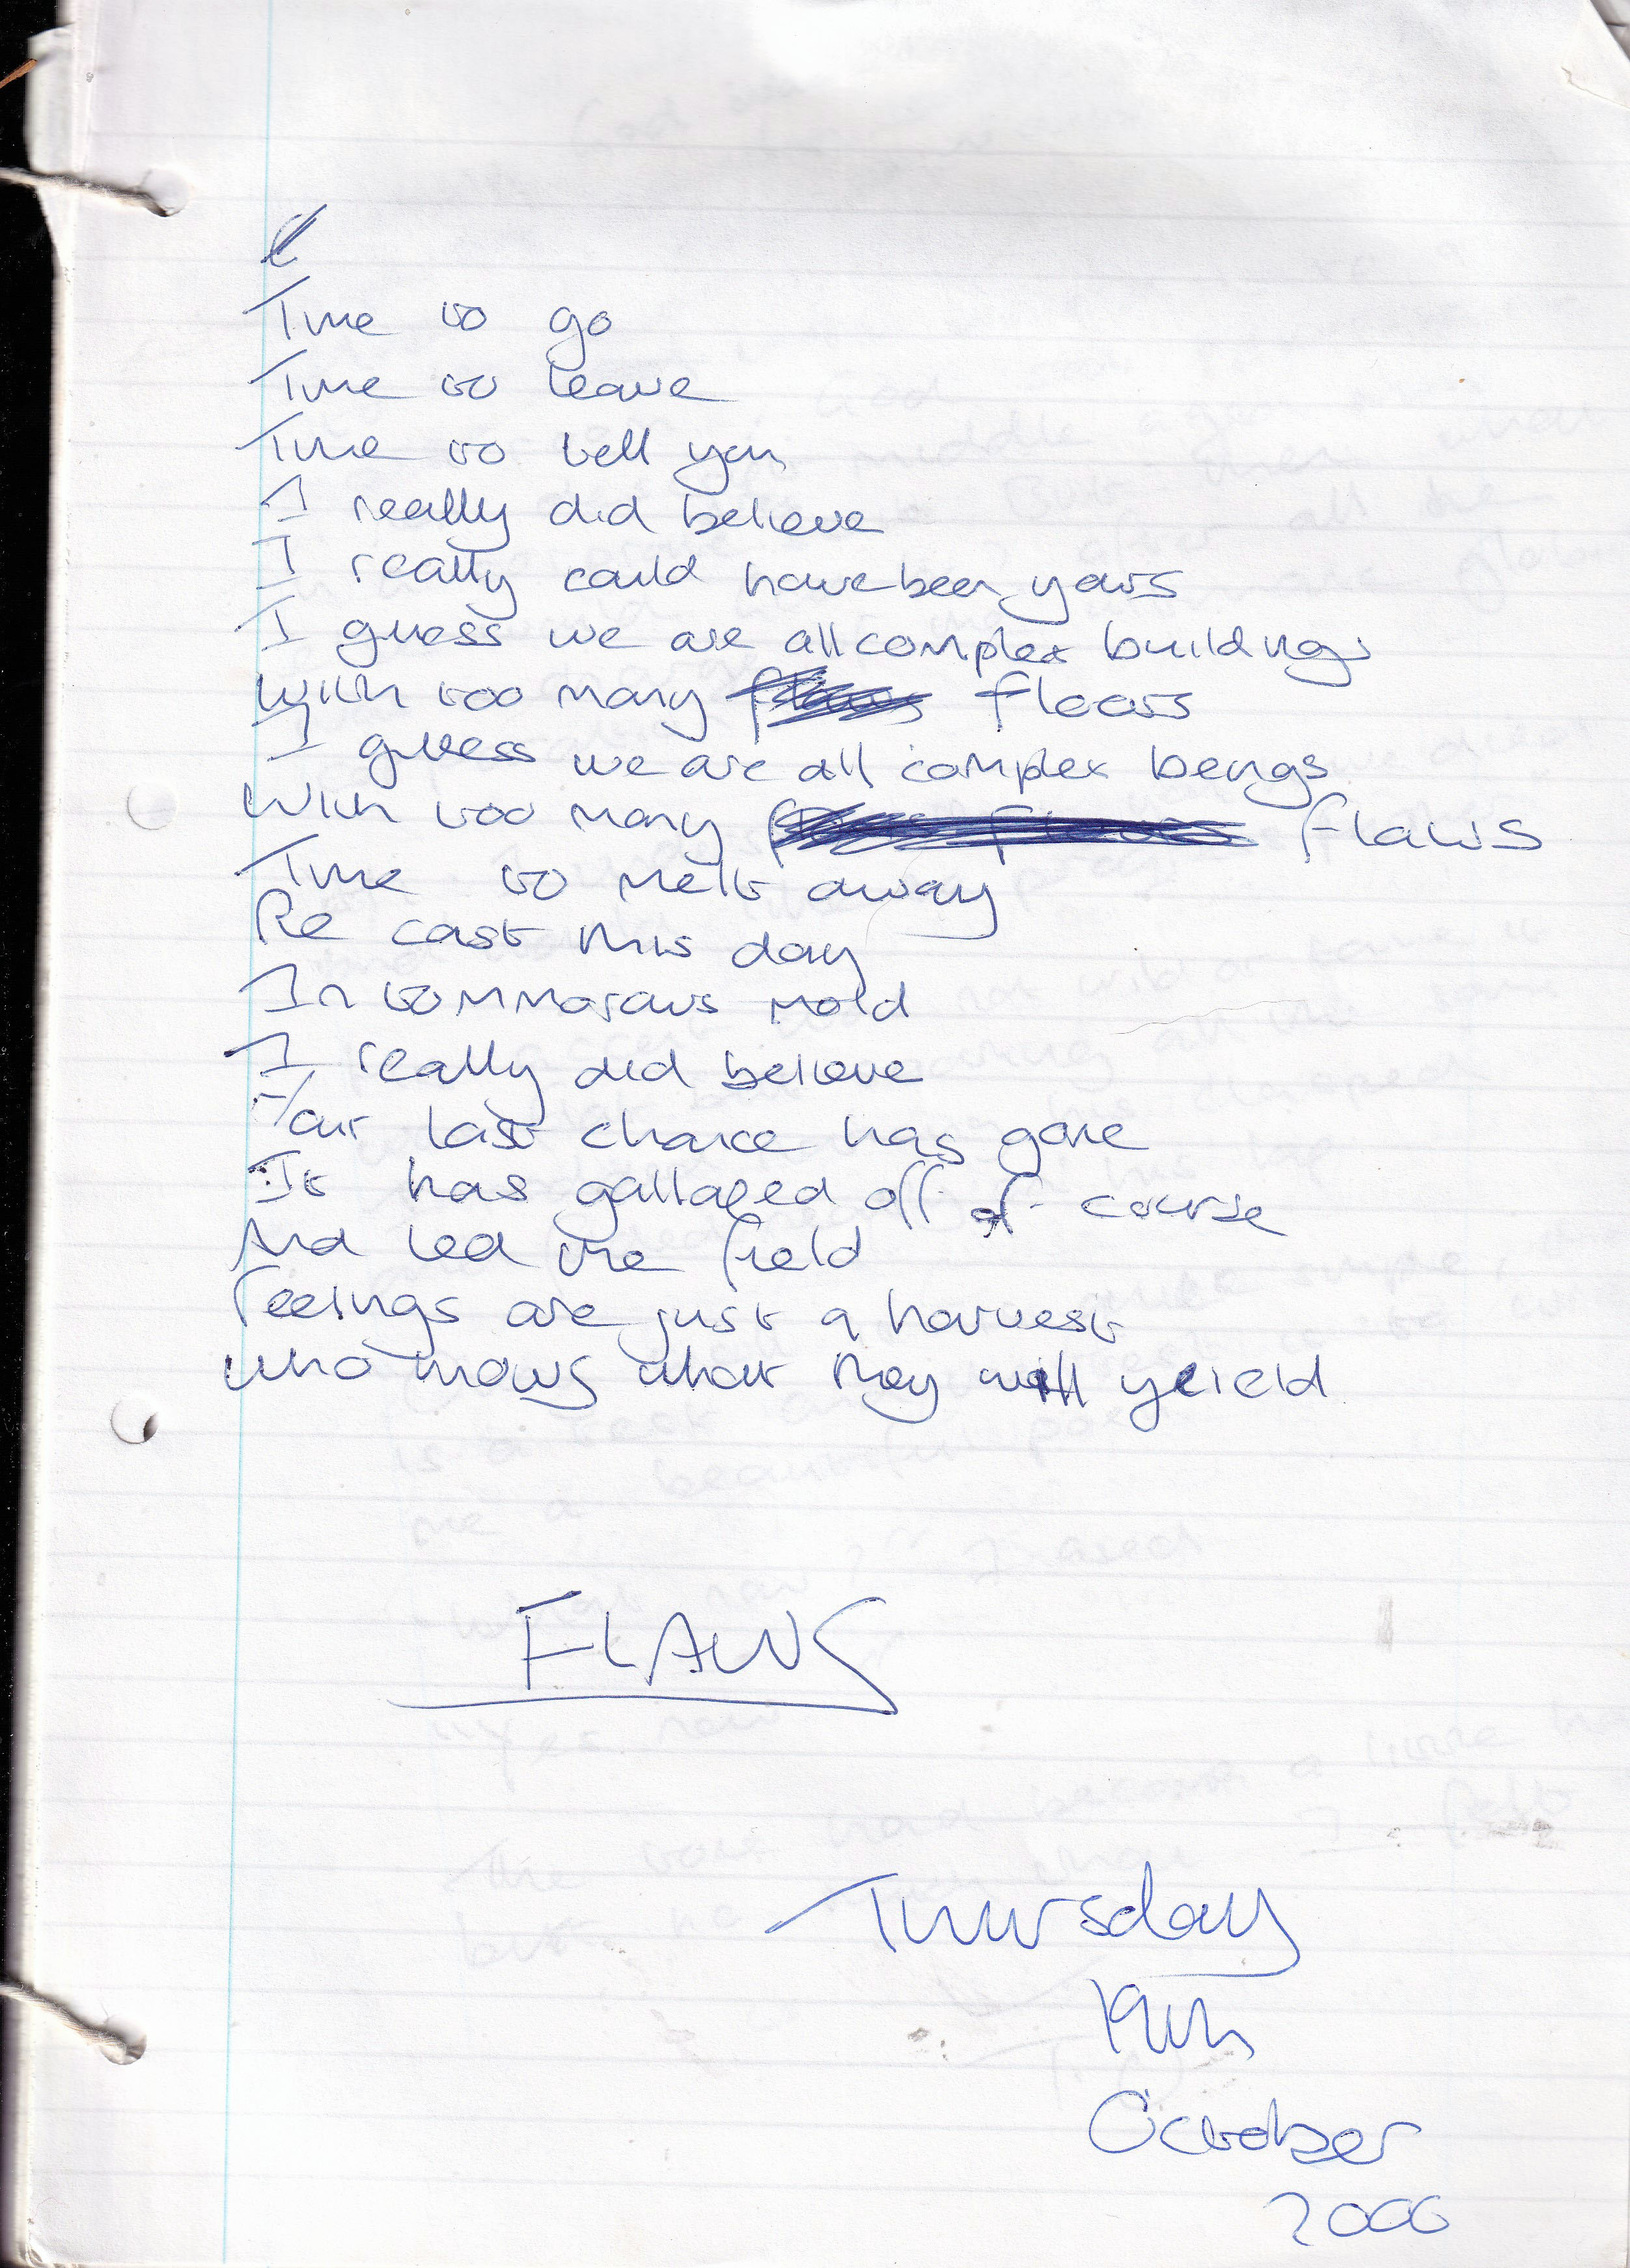 Time to go
Time to leave
Time to tell you
I really did believe
I really could have been yours
I guess we are all complex buildings
With too many floors
I guess we are all complex beings
With too many flaws
Time to melt away
Re cast this day
In tommorows mold
I really did believe
Our last chance has gone
It has galloped off of course
And led the field
Feelings are just a harvest
Who knows what they will yeield
FLAWS
Thursday
19th
October
2006